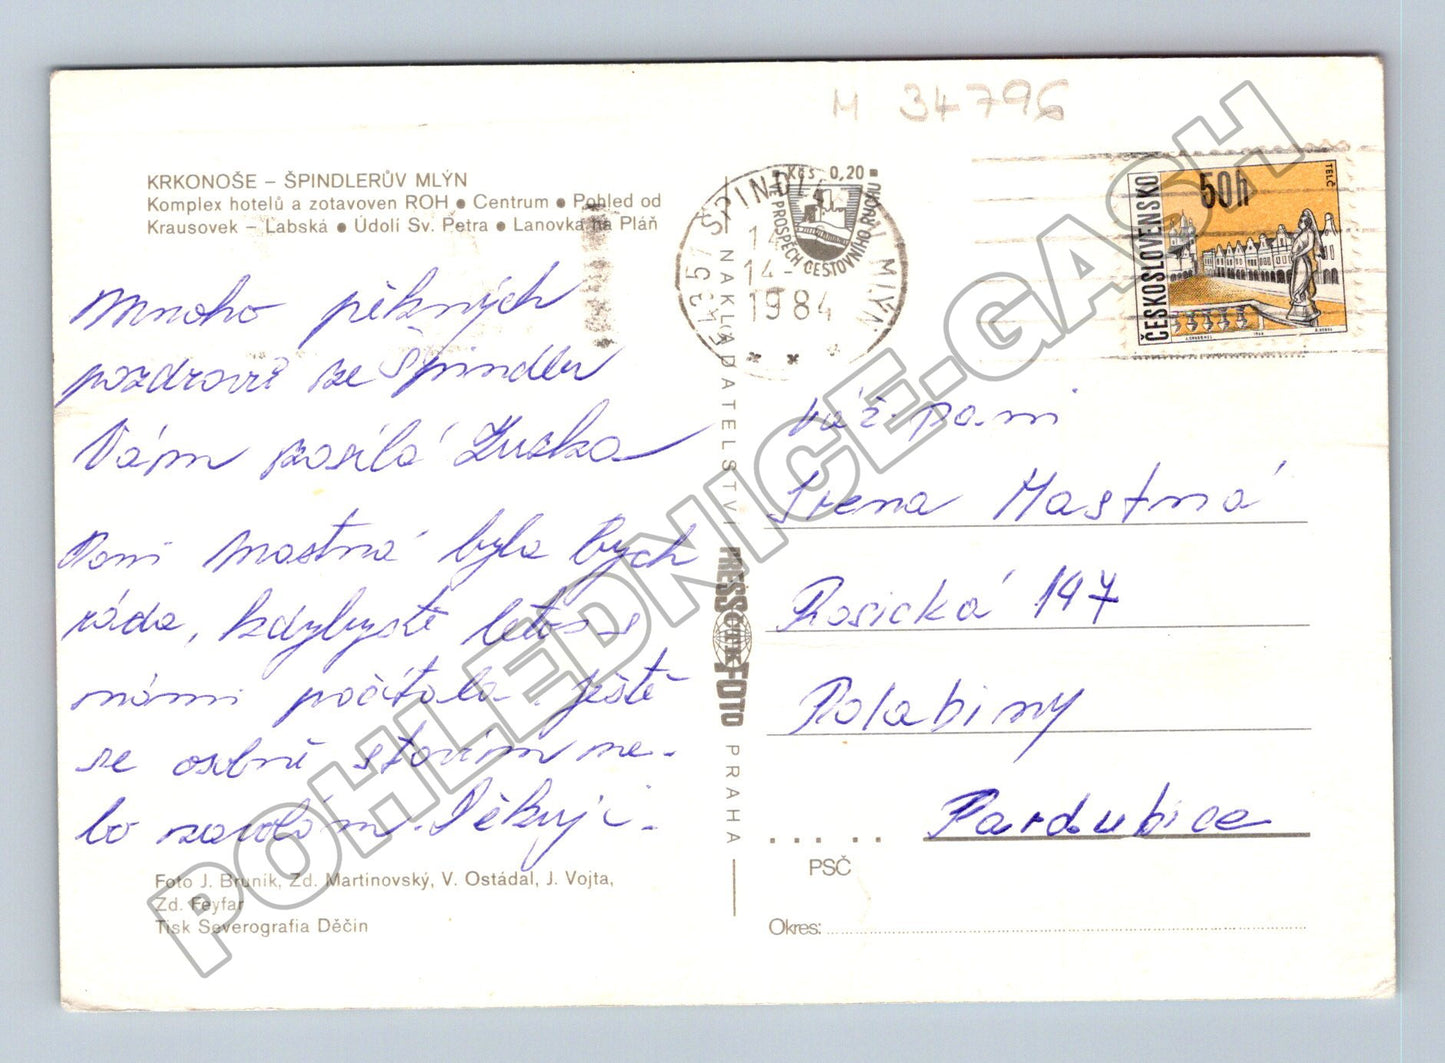 M 34796
KRKONOŠE – ŠPINDLERŮV MLÝN
Komplex hotelů a zotavoven ROH ● Centrum ● Pohled od
Krausovek – Labská ● Údolí Sv. Petra ● Lanovka na Pláň
Mnoho pěkných
pozdravů ze Špindlu
Vám posílá Zuzka
Paní Mastná byla bych
ráda, kdybyste letos s
námi počítala. Ještě
se osobně stavím ne-
bo zavolám. Děkuji.
Foto J. Bruník, Zd. Martinovský, V. Ostádal, J. Vojta,
Zd. Feyfar
Tisk Severografia Děčín
NAKLADATELSTVÍ
PRESSFOTO
ČTK
PRAHA
543 51 ŠPINDL MLÝN
Kčs 0,20
VE PROSPĚCH CESTOVNÍHO RUCHU
14
1984
ČESKOSLOVENSKO
50h
TELČ
Váž. paní
Irena Mastná
Rosická 197
Polabiny
Pardubice
PSČ
Okres:
POHLEDNICE-GASH